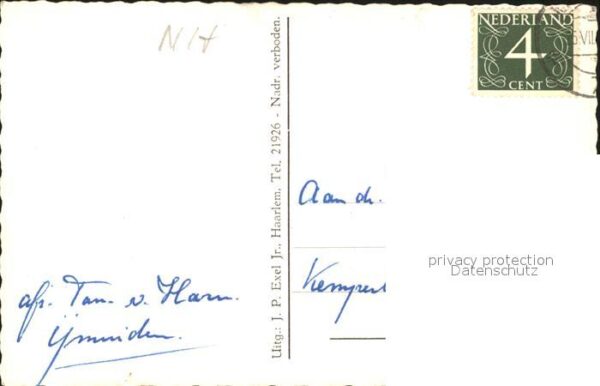 NH
NEDERLAND
4
CENT
VII
Uitg.: J. P. Exel Jr., Haarlem, Tel. 21926 - Nadr. verboden.
Aan d
privacy protection
Datenschutz
afz. v. Ham.
IJmuiden.